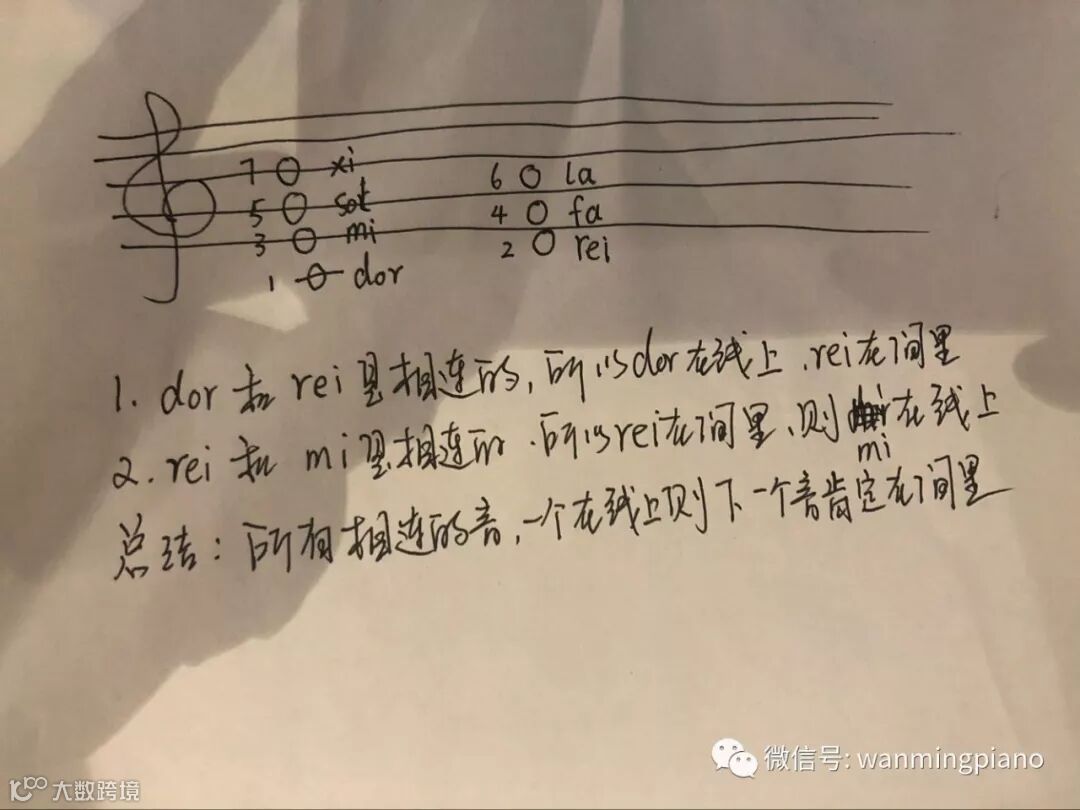 7 xi
6 la
5 sol
4 fa
3 mi
2 rei
1 dor
1. dor 和 rei 是相连的, 所以dor在线上、rei在间里
2. rei 和 mi是相连的、所以rei在间里、则mi在线上
总结: 所有相连的音, 一个在线上则下一个音肯定在间里
微信号: wanmingpiano
大数跨境